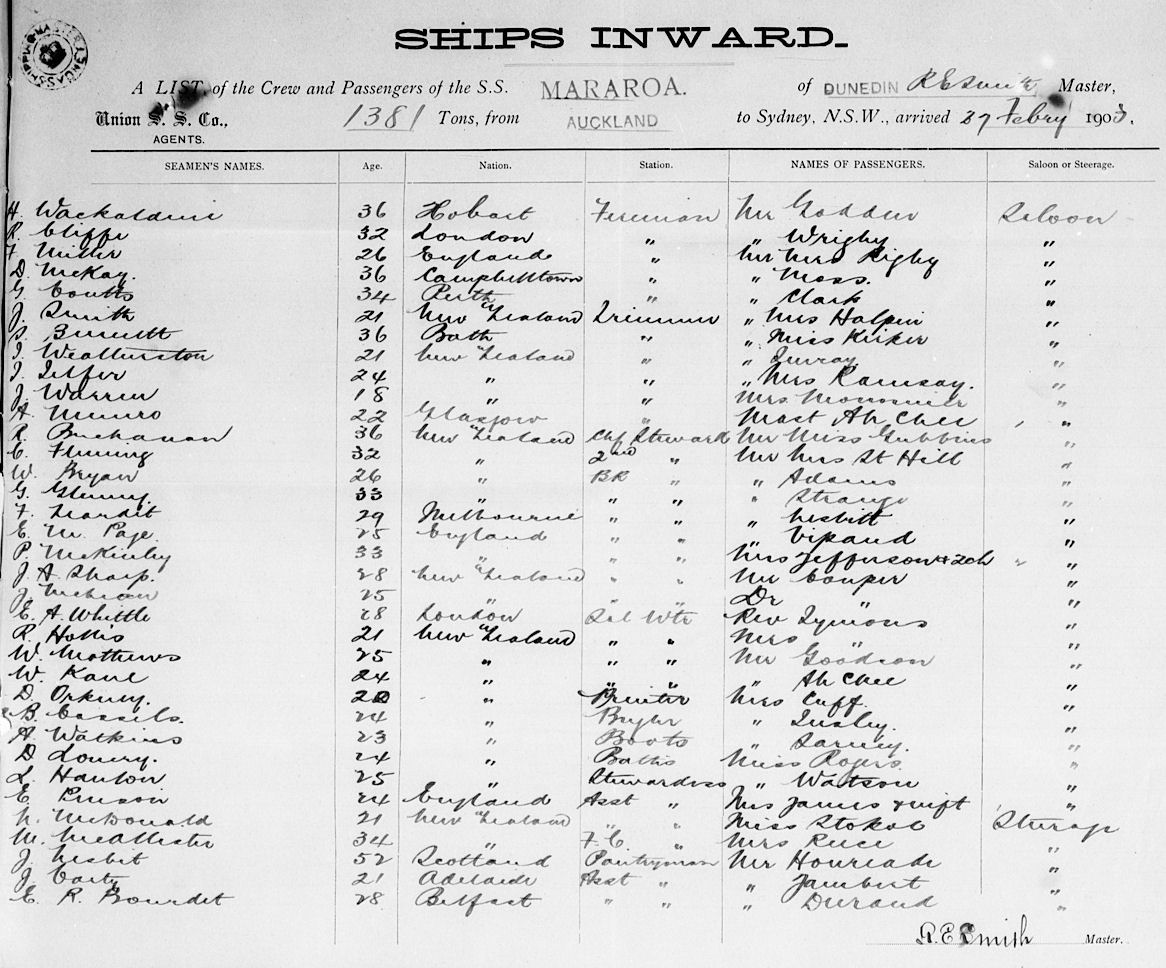 SHIPPING MASTER'S
SHIPS INWARD.
A LIST of the Crew and Passengers of the S.S. MARAROA. of DUNEDIN R E Smith Master,
Union S. S. Co., 1381 Tons, from AUCKLAND to Sydney, N.S.W., arrived 27 Febry 1903.
AGENTS.
SEAMEN'S NAMES. Age. Nation. Station. NAMES OF PASSENGERS. Saloon or Steerage.
H. 36 Hobart Fireman Mr Saloon
R. Cliffe 32 London " " Wrigby "
F. Miller 26 England " Mr Mrs Rigby "
D. McKay. 36 Campbelltown " " Moss. "
G. Coutts 34 Perth " " Clark "
J. Smith 21 New Zealand Trimmer " Mrs Halpin "
S. Bennett 36 Bath " " Miss Kirker "
I. Weatherston 21 New Zealand " " "
24 " " " Mrs Ramsay. "
J. Warren 18 " " Mrs "
A. Munro 22 Glasgow " Mast Ah Chee "
R. Buchanan 36 New Zealand Chf Steward Mr Miss Gubbins "
C. Fleming 32 " 2nd " Mr Mrs St Hill "
W. Bryan 26 " BR " " Adams "
G. 33 " " " " Strange "
F. 29 Melbourne " " " Nesbitt "
E. M. Page. 25 England " " " Vipand "
P. McKinley 33 " " " Mrs Jefferson & 2ch "
J. A Sharp. 28 New Zealand " " Mr Couper "
J. 25 " " " Dr " "
E. A. Whittle 28 London Sal Wtr Rev Symons "
R. Hollis 21 New Zealand " " Mrs " "
W. Mathews 25 " " " Mr Goodson "
W. Kane 24 " " " " Ah Chee "
D. Orkney. 20 " Printer Mrs Cuff. "
B. Cassels. 24 " " "
A. Watkins 23 " Boots " "
D. Lowry. 24 " Baths Miss Rogers. "
L. Hanlon 25 " Stewardess " Watson "
E. 24 England Asst " Mrs James & inft "
N. McDonald 21 New Zealand " " Miss Stokob Steerage
M. McAllister 34 " F. C. " Mrs "
J. Nesbit 52 Scotland Pantryman Mr "
J. Carty 21 Adelaide Asst " " Jambert "
E. R. Bourdet 28 Belfast " " " Durand "
R. E Smith Master.